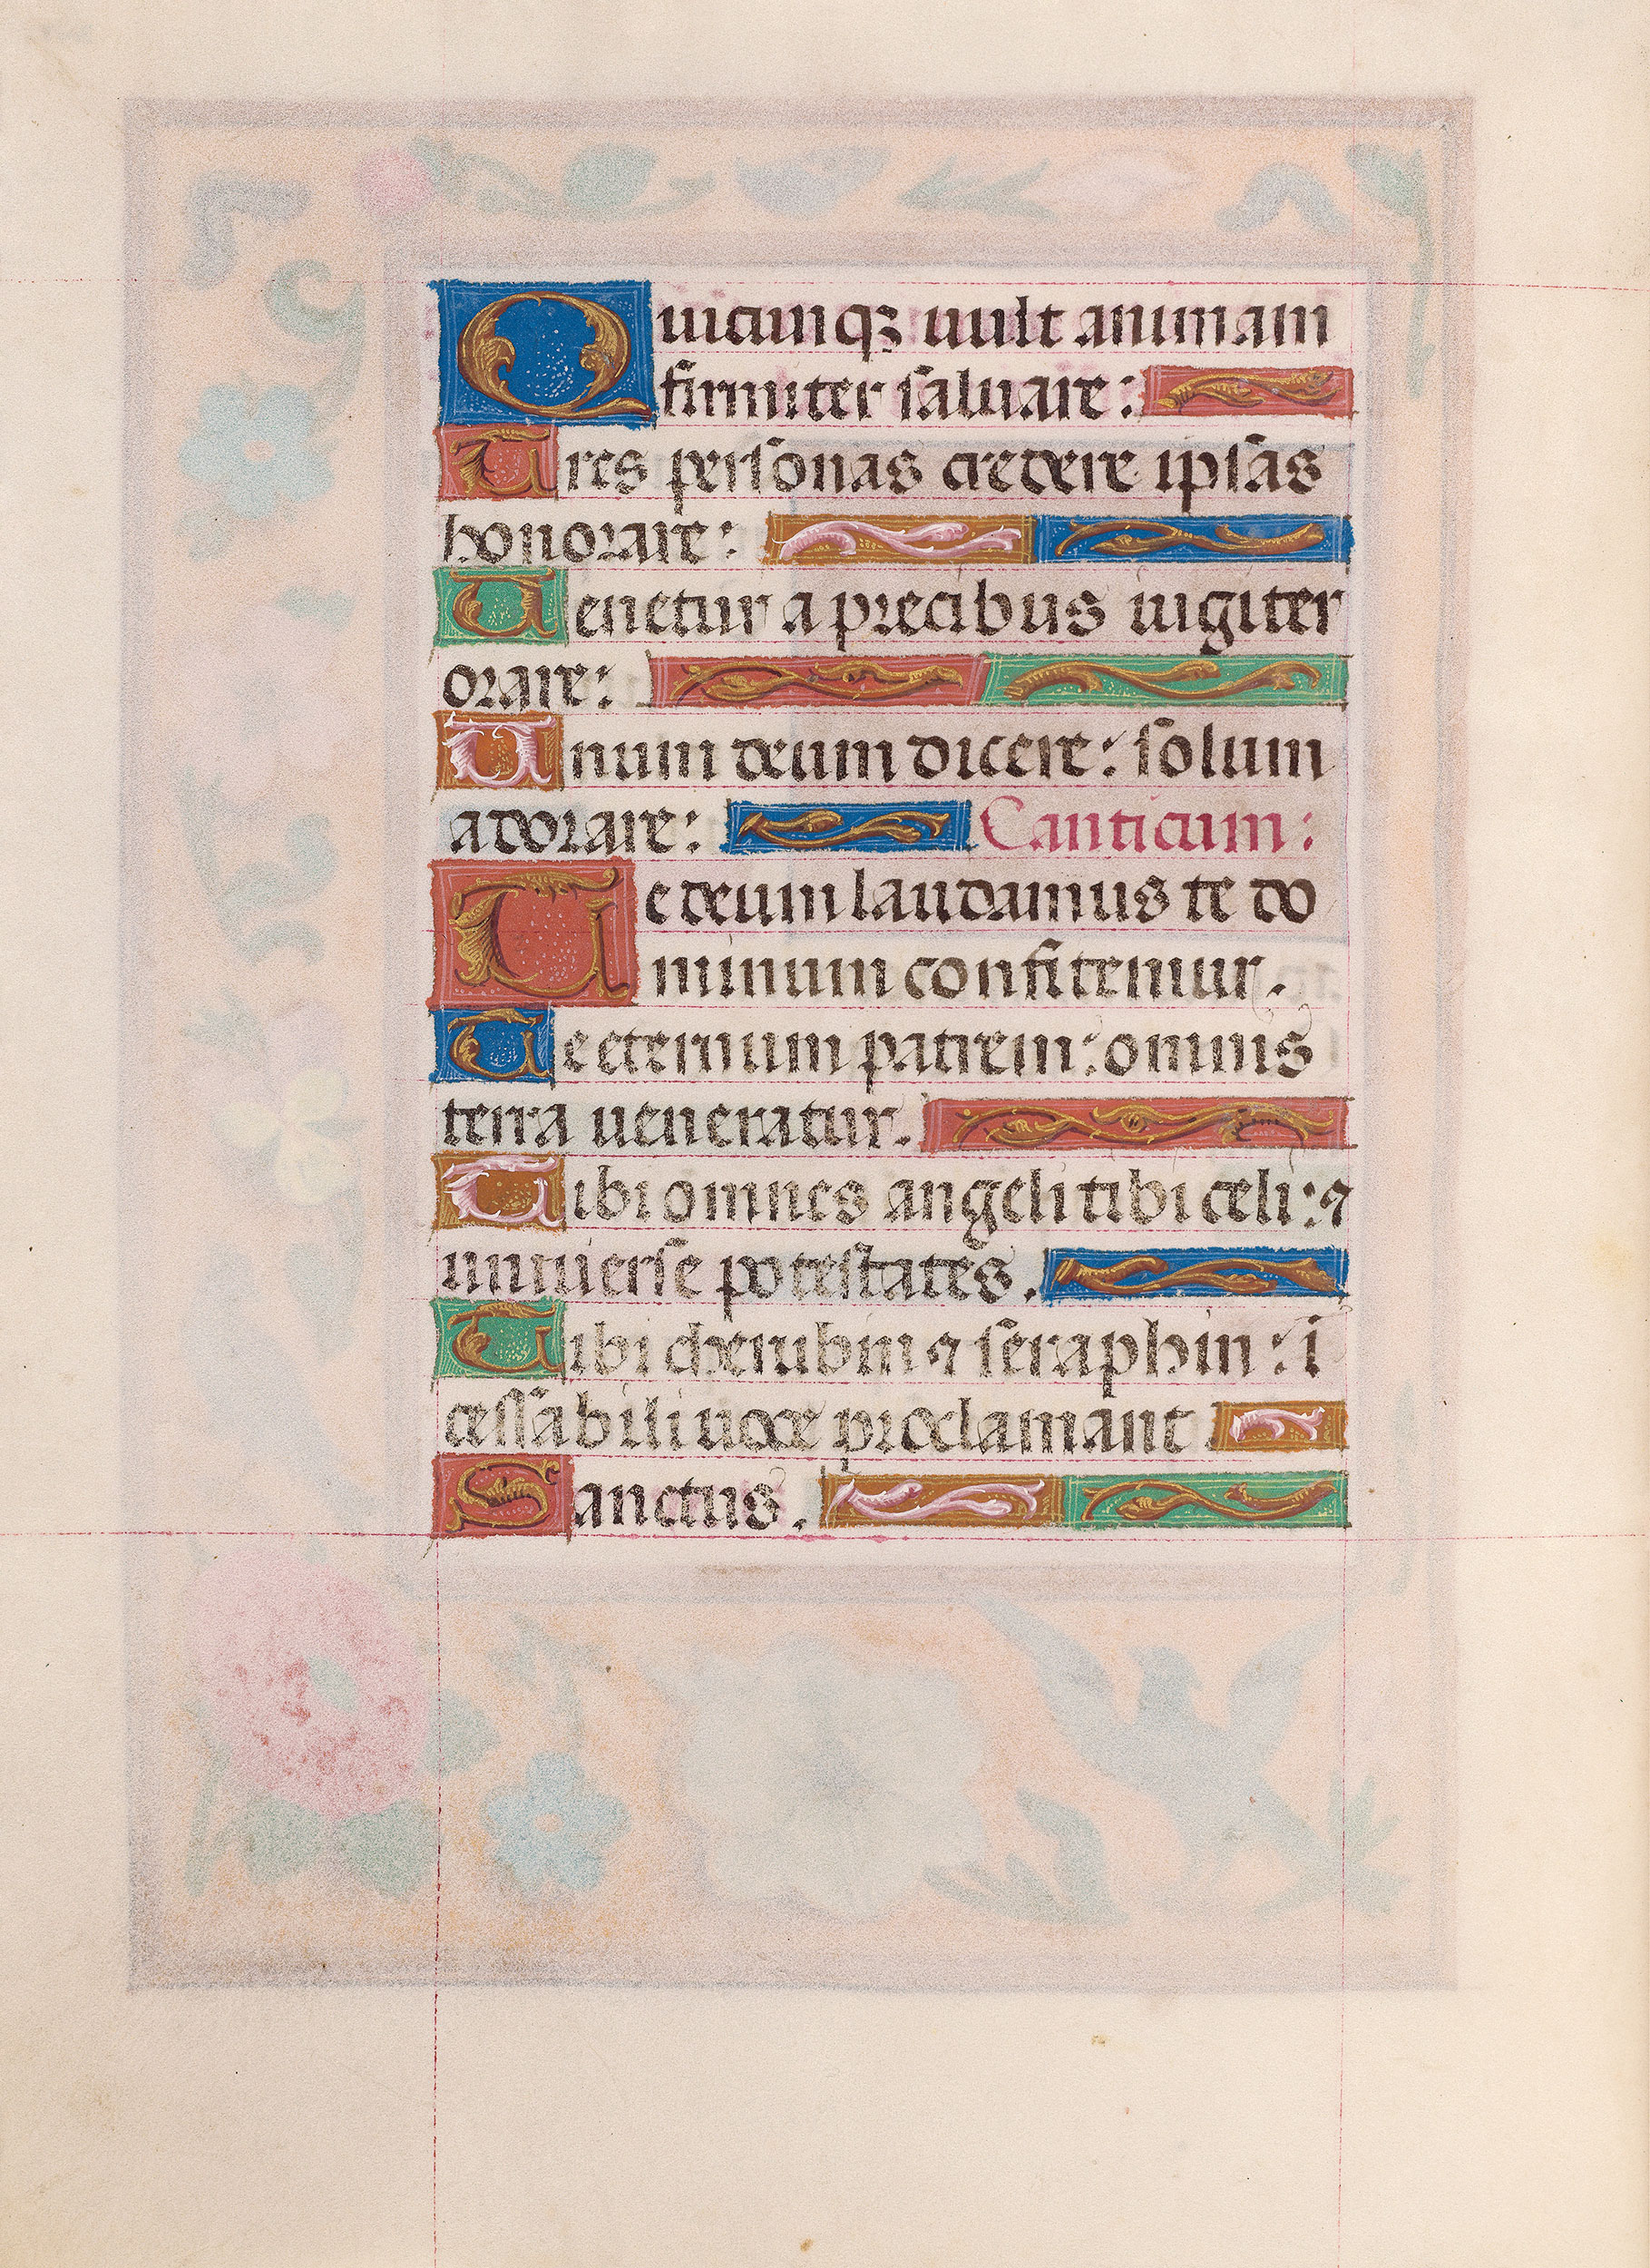 Quicunqꝫ uult animam
firmiter saluare:
Tres personas credere ipsas
honorare:
Tenetur a precibus iugiter
orare:
Unum deum dicere: solum
adorare: Canticum:
Te deum laudamus te do
minum confitemur.
Te eternum patrem: omnis
terra ueneratur.
Tibi omnes angeli tibi celi: ⁊
uniuerse potestates.
Tibi cherubin ⁊ seraphin: i
cessabili uoce proclamant.
Sanctus.